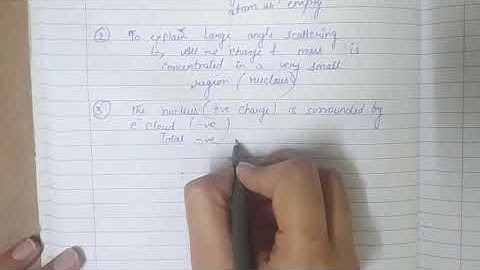 atom is empty
② To explain large angle scattering
+ve charge & mass is
concentrated in a very small
region (nucleus)
③ The nucleus (+ve charge) is surrounded by
e⁻ cloud (-ve)
Total -ve